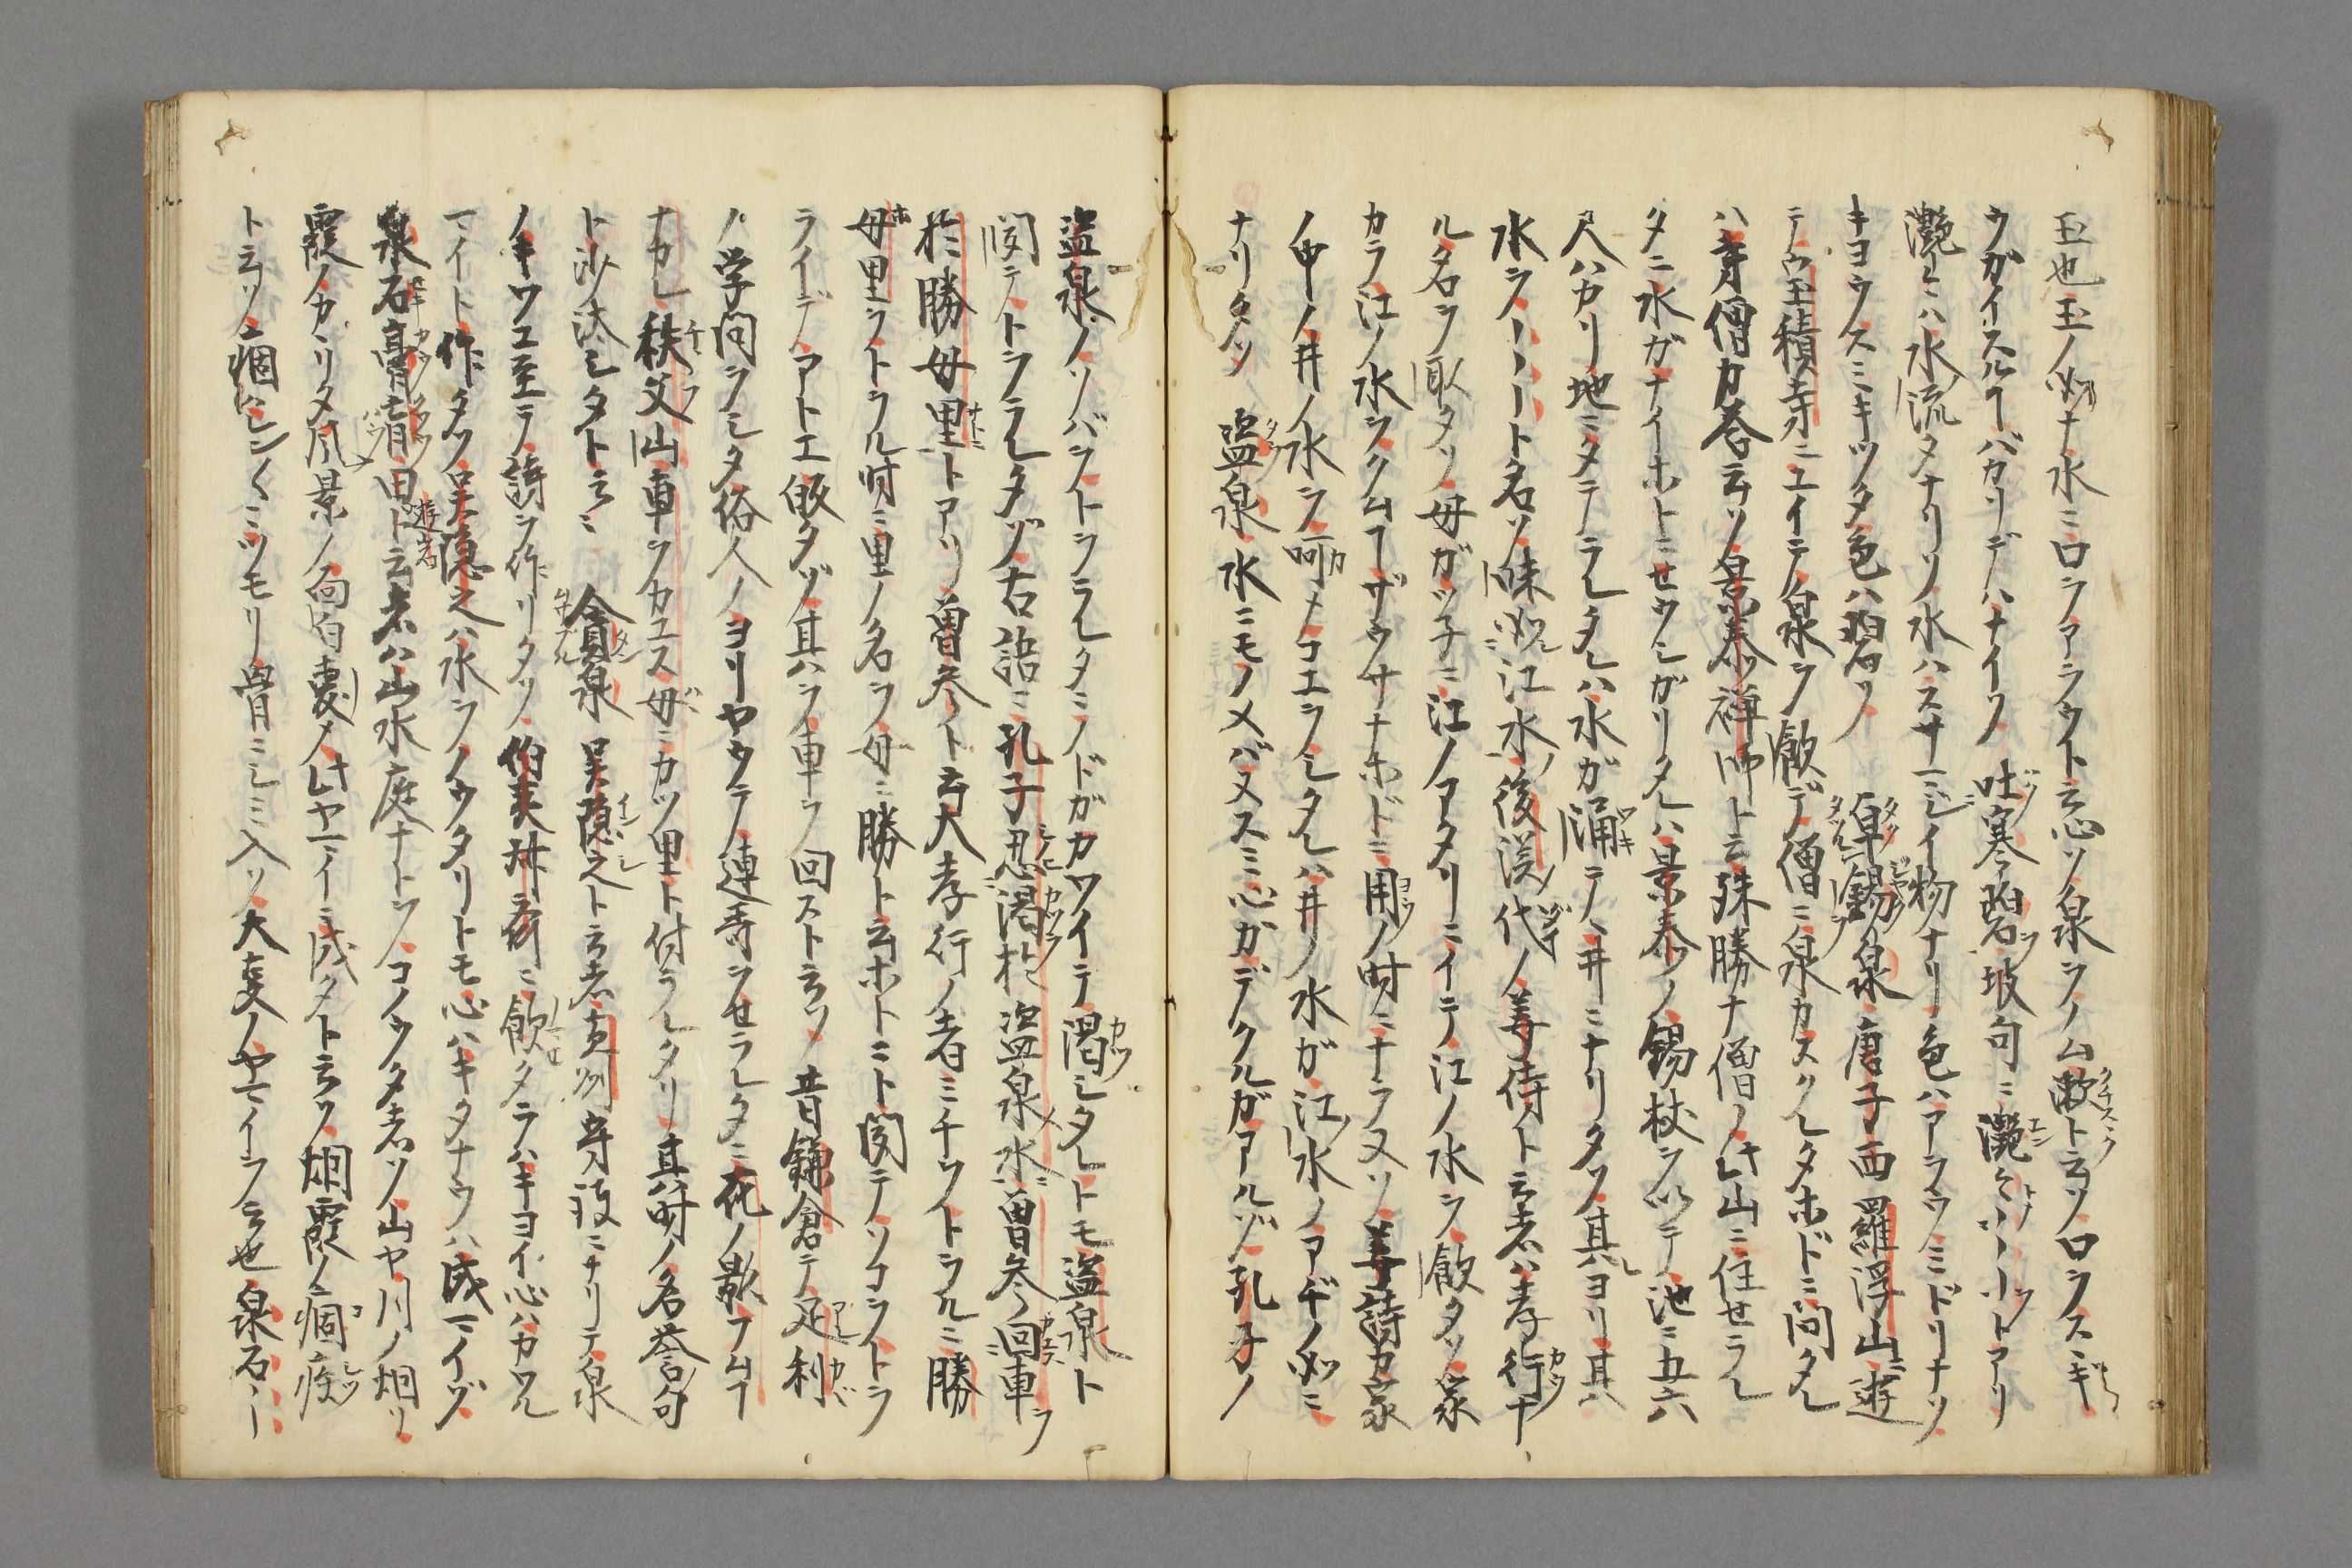 玉也玉ノ如ナ水ニロヲアラウト云心ソ泉ヲノム漱ト云ソロヲスヽギ
ウガイスルヿバカリデハナイソ 吐寒碧ヲ坡句ニ灔々ハ――トアリ
灔々ハ水流タナリソ水ハスサマジイ物ナリ色ハアラウミドリナソ
キヨウスミキツタ色ハ碧ソ 卓錫泉 唐子西羅浮山ニ遊
テ宝積寺ニエイテ泉ヲ飲デ僧ニ泉カスクレタホドニ問タレ
ハ寺僧カ答云ソ景泰禅師ト云殊勝ナ僧ノ此山ニ住セラレ
タニ水ガナイホトニセウシガリタレハ景泰ノ錫杖ヲ以テ池ニ五六
尺ハカリ地ニタテラレタレハ水ガ涌テ井ニナリタソ其レヨリ其ハ
水ヲ――ト名ソ 味如江水ノ 後漢代ノ姜詩ト云者ハ孝行ナ
ル名ヲ取タソ母ガツ子ニ江ノアタリニイテ江ノ水ヲ飲タソ家
カラ江ノ水ヲクムヿザウサナホドニ用ノ時ニナラヌソ姜詩カ家
ノ中ノ井ノ水ヲ呵メコエヲシタレハ井ノ水ガ江水ノアヂノ如ニ
ナリタソ 盗泉 水ニモノメバヌスミ心ガデクルガアルゾ孔子ノ
盗泉ノソバヲトヲラレタニノドガカワイテ渇シタレトモ盗泉ト
聞テトヲラレタゾ古語ニ孔子忍渇於盗泉水曽参回車ヲ
於勝母里トアリ曽参ト云大孝行ノ者ミチヲトヲルニ勝
母里ヲトヲル時ニ里ノ名ヲ母ニ勝ト云ホトニト聞テソコヲトヲ
ライデアトエ皈タゾ其ハヲ車ヲ回ストヲソ 昔鎌倉テ足利
ノ学問ヲシタ俗人ノヨリヤウテ連哥ヲセラレタニ花ノ歌ヲムヿ
ナカレ秩父山車ヲカエス母ニカツ里ト付ラレタリ其時ノ名誉句
ト沙汰シタト云ニ 貪泉 呉隠之ト云者廣州守護ニナリテ泉
ノキワエ至ラ詩ヲ作リタソ伯夷叔斉ニ飲タラハキヨイ心ハカワル
マイト作タソ呉隠之ハ水ヲノウタリトモ心ハキタナウハ成マイゾ
泉石膏肓 田遊岩ト云者ハ山水庭ナトヲコノウタ者ソ山ヤ川ノ烟リ
霞ノカヽリタ風景ノ面白裏メ此ヤマイニ成タト云ソ烟霞ノ痼疾
ト云ソ痼ハシンノミツモリ骨ニシミ入ソ大変ノヤマイヲ云也泉石――